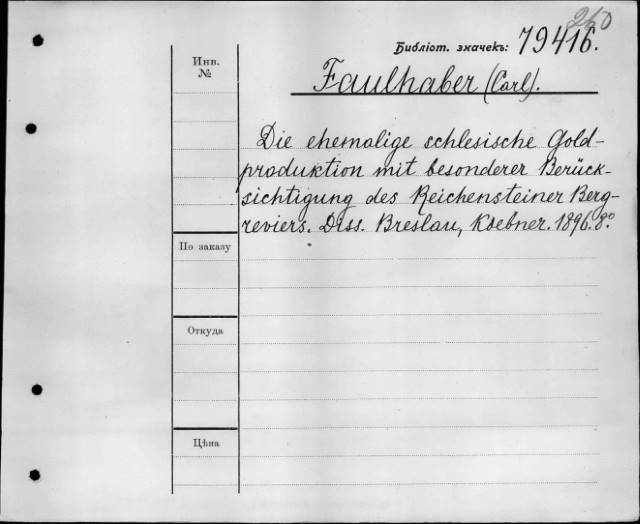 260
Библіот. значекъ: 79416.
Инв.
№
Faulhaber (Carl).
Die ehemalige schlesische Gold-
produktion mit besonderer Berück-
sichtigung des Reichensteiner Berg-
reviers. Diss. Breslau, Koebner. 1896. 8°.
По заказу
Откуда
Цѣна